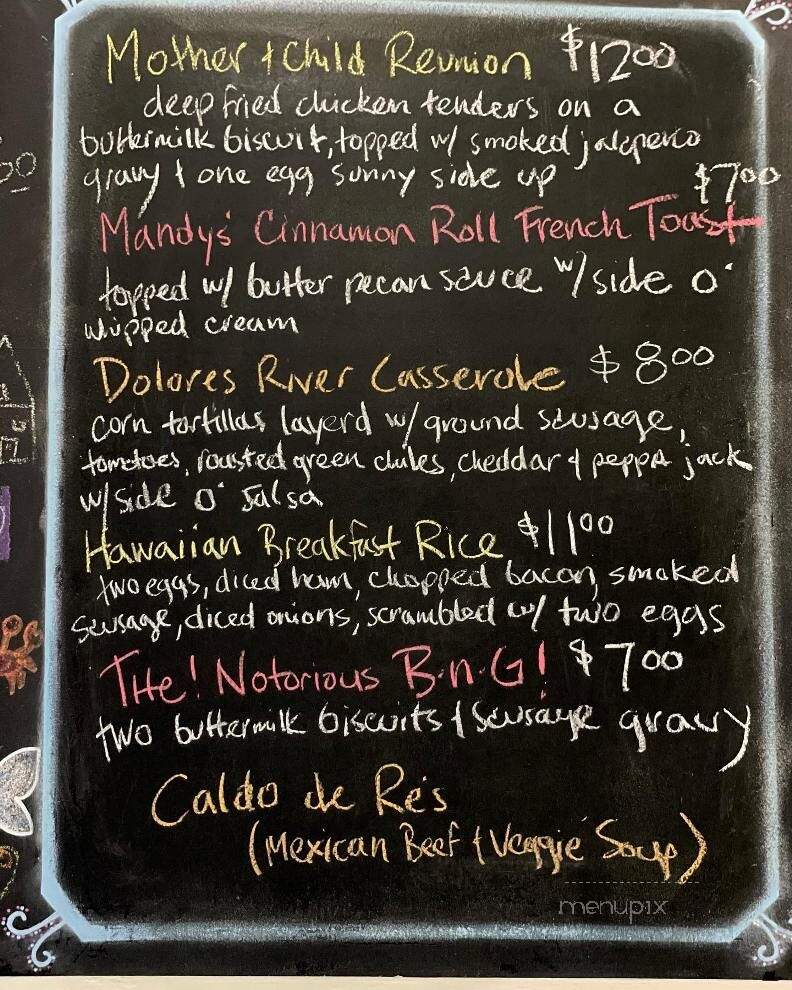 Mother & Child Reunion $12.00
deep fried chicken tenders on a
buttermilk biscuit, topped w/ smoked jalepeno
gravy & one egg sunny side up
$7.00
Mandy's Cinnamon Roll French Toast
topped w/ butter pecan sauce w/ side o'
whipped cream
Dolores River Casserole $8.00
corn tortillas layerd w/ ground sausage,
tomatoes, roasted green chiles, cheddar & pepper jack
w/ side o' salsa
Hawaiian Breakfast Rice $11.00
two eggs, diced ham, chopped bacon, smoked
sausage, diced onions, scrambled w/ two eggs
THe! Notorious B.n.G! $7.00
two buttermilk biscuits & sausage gravy
Caldo de Res
(Mexican Beef & Veggie Soup)
menupix